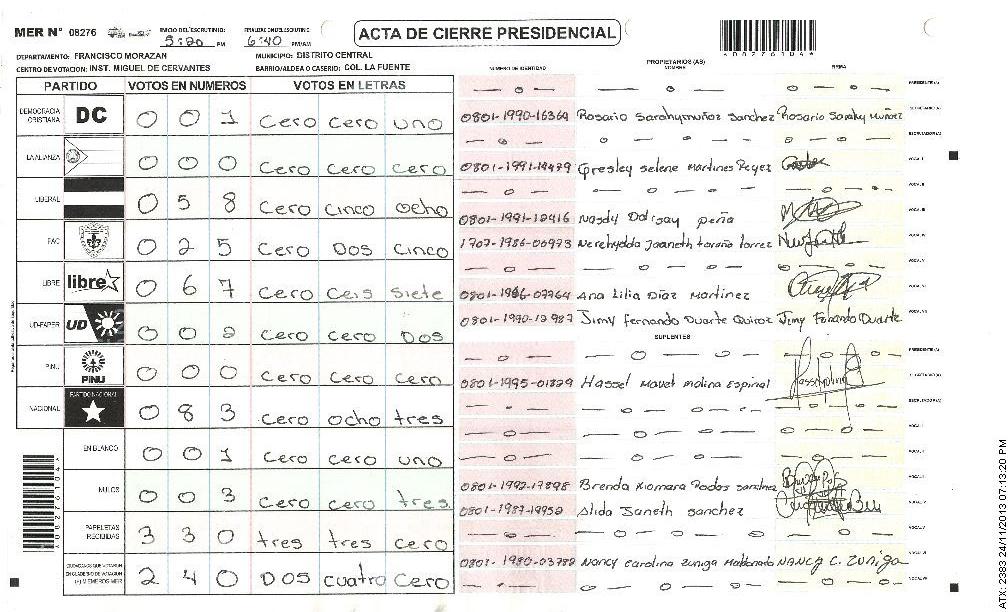 MER Nº 08276 INICIO DEL ESCRUTINIO: 5:20 PM FINALIZACION DEL ESCRUTINIO: 6:40 PM/AM
ACTA DE CIERRE PRESIDENCIAL
DEPARTAMENTO: FRANCISCO MORAZAN MUNICIPIO: DISTRITO CENTRAL
CENTRO DE VOTACION: INST. MIGUEL DE CERVANTES BARRIO/ALDEA O CASERIO: COL. LA FUENTE
PARTIDO VOTOS EN NUMEROS VOTOS EN LETRAS
DEMOCRACIA CRISTIANA DC 0 0 1 Cero Cero uno
LA ALIANZA 0 0 0 Cero Cero Cero
LIBERAL 0 5 8 Cero Cinco ocho
PAC 0 2 5 Cero Dos Cinco
LIBRE libre 0 6 7 Cero Ceis Siete
UD-FAPER UD 0 0 2 Cero Cero Dos
PINU PINU 0 0 0 Cero Cero Cero
NACIONAL PARTIDO NACIONAL 0 8 3 Cero ocho tres
EN BLANCO 0 0 1 Cero Cero uno
NULOS 0 0 3 Cero Cero tres
PAPELETAS RECIBIDAS 3 3 0 tres tres cero
CIUDADANOS QUE VOTARON 2 4 0 DOS cuatro Cero
NUMERO DE IDENTIDAD PROPIETARIOS (AS) NOMBRE FIRMA
PRESIDENTE (A)
0801-1990-16364 Rosario Sarahy muñoz Sanchez Rosario Sarahy Muñoz SECRETARIO (A)
ESCRUTADOR (A)
0801-1991-14479 Gresley Selene Martines Reyez VOCAL I
VOCAL II
0801-1991-12416 Nasdy Dolisay peña VOCAL III
1707-1986-00973 Nerehydda Janeth toraño torrez VOCAL IV
VOCAL V
0801-1986-07764 Ana Lilia Díaz Martinez
0801-1990-12987 Jimy fernando Duarte Quiroz Jimy Fernando Duarte
SUPLENTES
PRESIDENTE (A)
0801-1995-01829 Hassel Mavel molina Espinal SECRETARIO (A)
ESCRUTADOR (A)
VOCAL I
VOCAL II
0801-1992-17898 Brenda Xiomara Rodos sanchez
0801-1987-19952 Alida Janeth sanchez
0801-1980-03788 Nancy carolina Zuniga Maldonado NANCY C. ZUNIGA
ATX: 2383 24/11/2013 07:13:20 PM